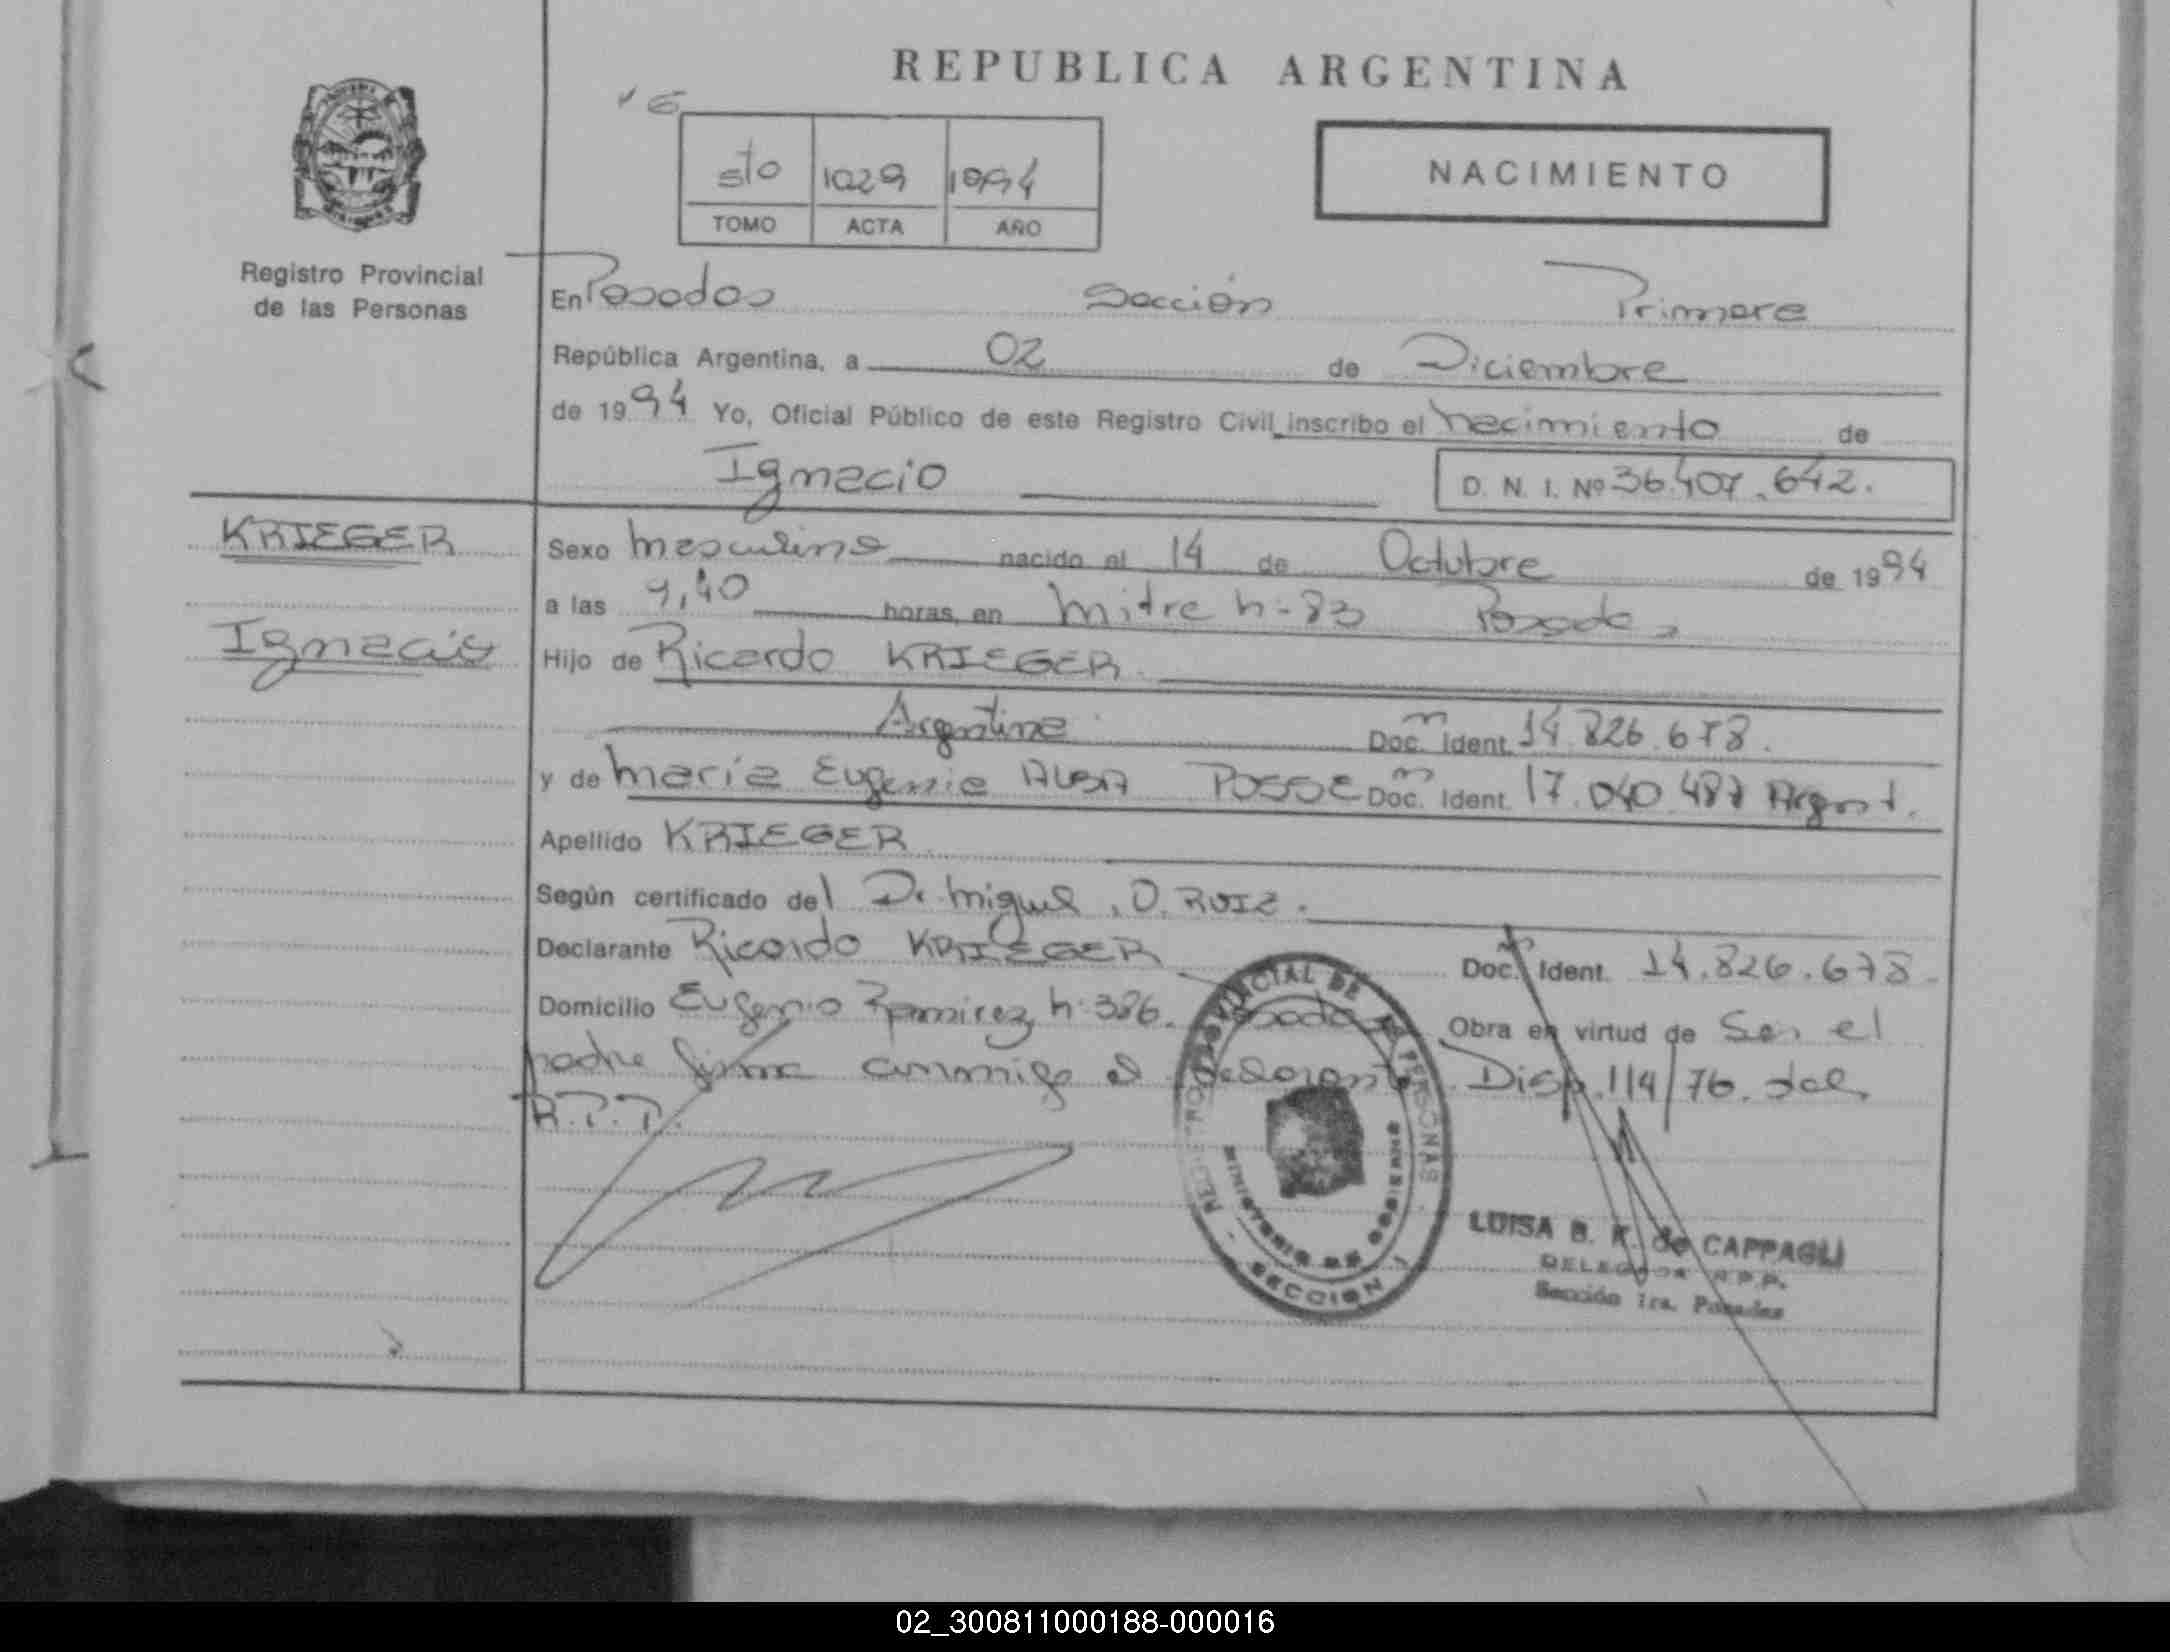 REPUBLICA ARGENTINA
NACIMIENTO
5to 1029 1994
TOMO ACTA AÑO
Registro Provincial
de las Personas
En Posadas Sección Primera
República Argentina, a 02 de Diciembre
de 1994 Yo, Oficial Público de este Registro Civil inscribo el nacimiento de
Ignacio D. N. I. Nº 36.407.642.
KRIEGER
Ignacio
Sexo masculino nacido el 14 de Octubre de 1994
a las 9,40 horas, en Mitre nº 83 Posadas
Hijo de Ricardo KRIEGER
Argentina Doc. Ident. 14.826.678.
y de María Eugenia ALBA POSSE Doc. Ident. 17.040.487 Argent.
Apellido KRIEGER
Según certificado del Dr. Miguel. O. RUIZ.
Declarante Ricardo KRIEGER Doc. Ident. 14.826.678
Domicilio Eugenio Ramirez nº 386. Posadas Obra en virtud de Ser el
padre firma conmigo el declarante Disp. 114/76. del
R.P.P.
REGISTRO PROVINCIAL DE LAS PERSONAS
MINISTERIO DE GOBIERNO
- SECCION 1
LUISA B. K. de CAPPAGLI
DELEGADA R.P.P.
Sección 1ra. Posadas
02_300811000188-000016